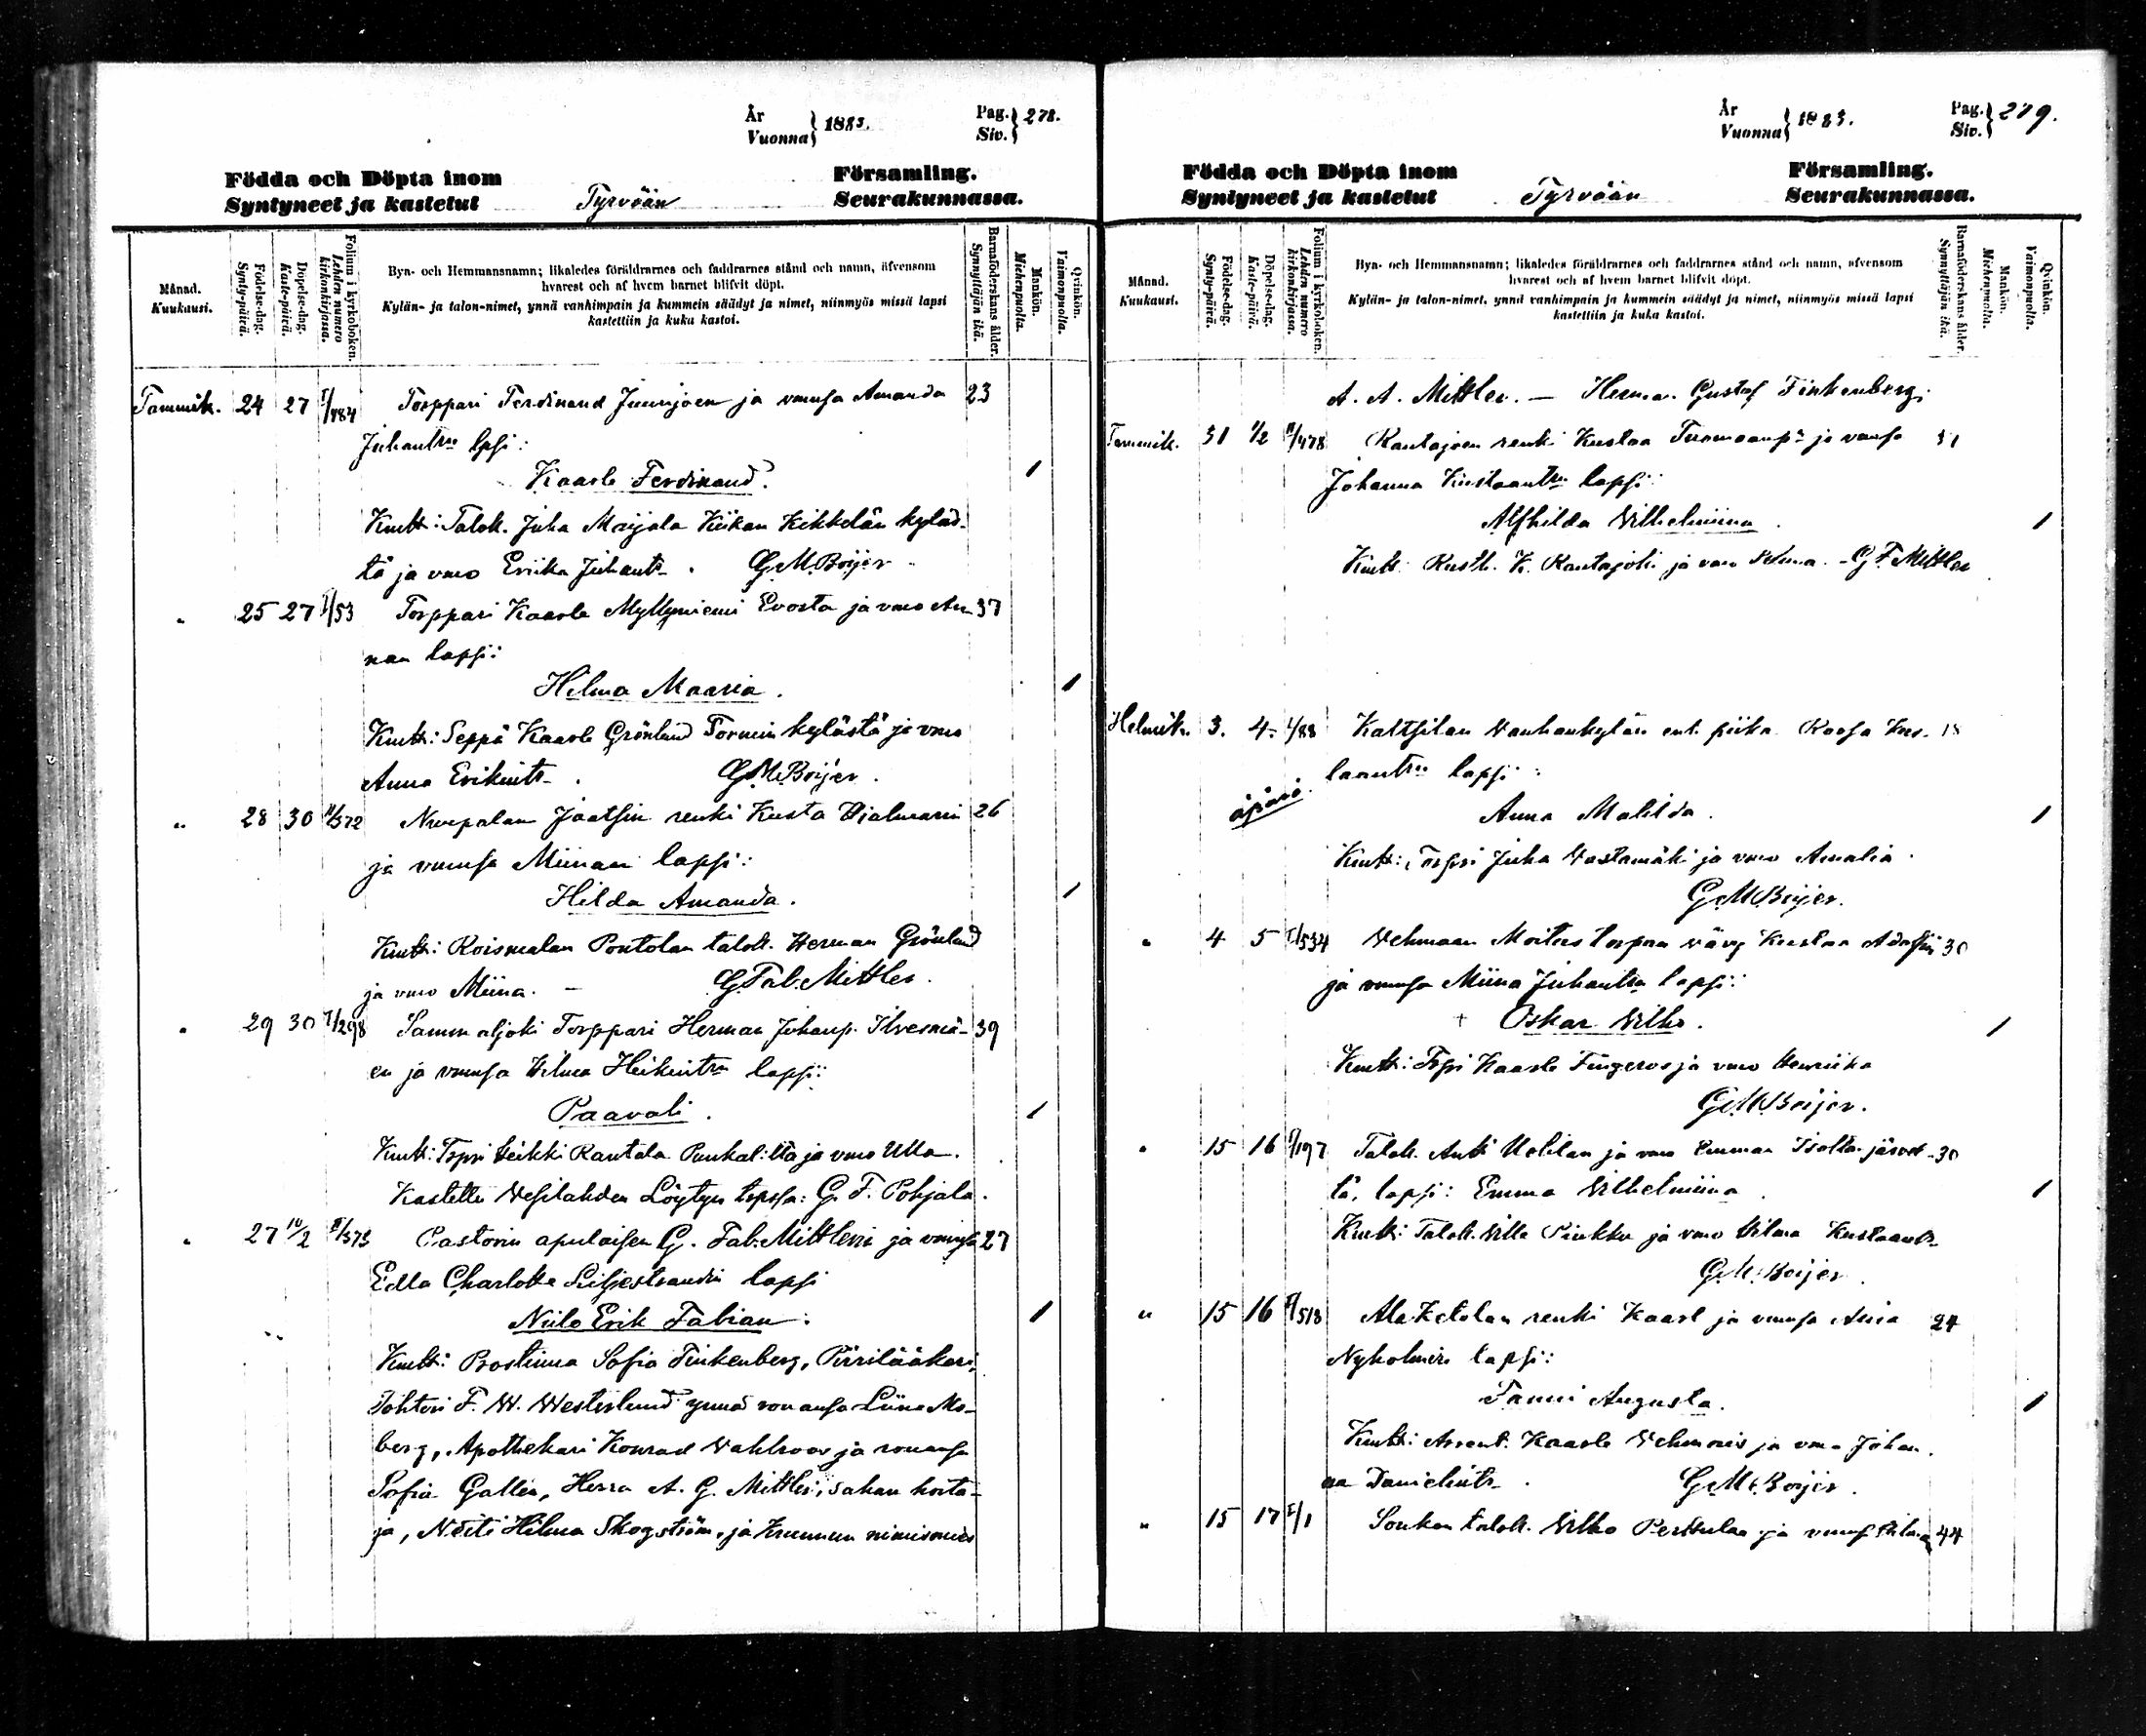 År
Vuonna } 1883.
Pag.
Siv. } 278.
Födda och Döpta inom Församling.
Syntyneet ja kastetut Tyrvään Seurakunnassa.
Månad.
Kuukausi.
Födelse-dag.
Synty-päivä.
Döpelse-dag.
Kaste-päivä.
Folium i kyrkoboken.
Lehden numero
kirkonkirjassa.
Byn- och Hemmansnamn; likaledes föräldrarnes och faddrarnes stånd och namn, äfvensom
hvarest och af hvem barnet blifvit döpt.
Kylän- ja talon-nimet, ynnä vanhimpain ja kummein säädyt ja nimet, niinmyös missä lapsi
kastettiin ja kuka kastoi.
Barnaföderskans ålder.
Synnyttäjän ikä.
Mankön.
Miehenpuolta.
Qvinkön.
Vaimonpuolta.
Tammik. 24 27 I/484 Torppari Ferdinand Junnjoen ja vmnsa Amanda 23
Juhantrn lpsi:
Kaarle Ferdinand. 1
Kmtt: Talok. Juha Marjala Kiikan Kikkelän kyläs-
tä ja vmo Eriika Juhantr. G.M.Boijer.
" 25 27 I/53 Torppari Kaarle Myllyniemi Evosta ja vmo An- 37
nan lapsi:
Hilma Maaria. 1
Kmtt: Seppä Kaarle Grönlund Tormin kylästä ja vmo
Anna Erikintr. G.M.Boijer.
" 28 30 II/372 Nuupalan Jaatsin renki Kusta Hjalmarin 26
ja vmnsa Miinan lapsi:
Hilda Amanda. 1
Kmtt: Roismalan Pontolan talok. Herman Grönlund
ja vmo Miina. – G.Fab.Mittler.
" 29 30 I/298 Sammaljoki Torppari Herman Juhanp. Ilvesmä- 39
en ja vmnsa Hilma Heikintrn lapsi:
Paavali. 1
Kmtt: Tprri Heikki Rantala Punkal:lta ja vmo Ulla.
Kastettu Vesilahden Löytyn tpssa: G. F. Pohjala.
" 27 10/2 II/573 Pastorin apulaisen G. Fab.Mittlerin ja vmnsa 27
Edla Charlotta Liljestrandin lapsi
Niilo Erik Fabian: 1
Kmtt: Prostinna Sofia Finkenberg, Piirilääkari,
Tohtori F. W. Westerlund ynnä rouansa Liina Mo-
berg, Apothekari Konrad Wahlroos ja rouansa
Sofia Gallen, Herra A. G. Mittler, sahan hoita-
ja, Neiti Hilma Skogström, ja Kruunun nimismies
År
Vuonna } 1883.
Pag.
Siv. } 279.
Födda och Döpta inom Församling.
Syntyneet ja kastetut Tyrvään Seurakunnassa.
Månad.
Kuukausi.
Födelse-dag.
Synty-päivä.
Döpelse-dag.
Kaste-päivä.
Folium i kyrkoboken.
Lehden numero
kirkonkirjassa.
Byn- och Hemmansnamn; likaledes föräldrarnes och faddrarnes stånd och namn, äfvensom
hvarest och af hvem barnet blifvit döpt.
Kylän- ja talon-nimet, ynnä vanhimpain ja kummein säädyt ja nimet, niinmyös missä lapsi
kastettiin ja kuka kastoi.
Barnaföderskans ålder.
Synnyttäjän ikä.
Mankön.
Miehenpuolta.
Qvinkön.
Vaimonpuolta.
A. A. Mittler. – Herra Gustaf Finkenberg.
Tammik. 31 1/2 II/478 Rantajoen renki Kustaa Tuomaanpn ja vmnsa
Johanna Kustaantrn lapsi:
Alfhilda Vilhelmiina. 1
Kmtt: Rusth. K. Rantajoki ja vmo Selma. G.F.Mittler
Helmik. 3. 4. I/88 Kaltsilan Vanhankylän ent. piika Roosa Kus- 18
taantrn lapsi:
äpärä.
Anna Matilda. 1
Kmtt: Torpri Juha Vastamäki ja vmo Amalia.
G.M.Boijer.
" 4 5 I/534 Vehmaan Moitus torpan vävy Kustaa Adolfin 30
ja vmnsa Miina Juhantrn lapsi:
+ Oskar Vilho. 1
Kmtt: Tpri Kaarle Fingeroos ja vmo Henriika
G.M.Boijer.
" 15 16 I/197 Talok. Antti Uolilan ja vmo Emman Isolta-järvel- 30
tä, lapsi: Emma Vilhelmiina. 1
Kmtt: Talok. Ville Pirkku ja vmo Hilma Kustaantr.
G.M.Boijer.
" 15 16 II/518 Ala Ketolan renki Kaarl ja vmnsa Miina 24
Nyholmin lapsi:
Fanni Augusta. 1
Kmtt: Arrent. Kaarle Vehmais ja vmo Johan-
na Danielintr. G.M.Boijer.
" 15 17 I/1 Soukon talok. Vilho Perttulan ja vmnsa Hilma 44